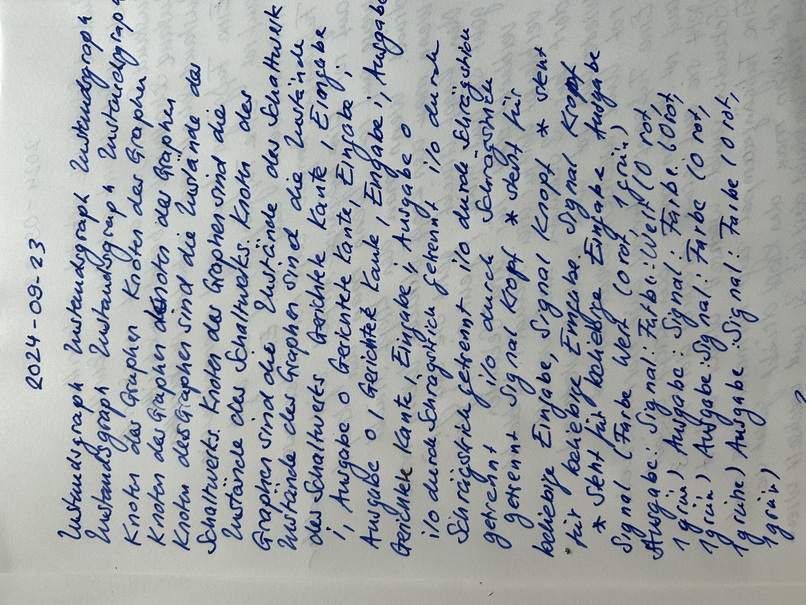 2024-09-23
Zustandsgraph Zustandsgraph Zustandsgraph
Zustandsgraph Zustandsgraph Zustandsgraph
Knoten des Graphen Knoten des Graphen
Knoten des Graphen Knoten des Graphen
Knoten des Graphen sind die Zustände des
Schaltwerks. Knoten des Graphen sind die
Zustände des Schaltwerks. Knoten des
Graphen sind die Zustände des Schaltwerk
Zustände des Graphen sind die Zustände
des Schaltwerks Gerichtete Kante, Eingabe
i, Ausgabe o Gerichtete Kante, Eingabe i
Ausgabe o, Gerichtete Kante, Eingabe i, Ausgabe
Gerichtete Kante, Eingabe i, Ausgabe o
i/o durch Schrägstrich getrennt i/o durch
Schrägstrich getrennt i/o durch Schrägstrich
getrennt i/o durch Schrägstrich
getrennt Signal Kropf * steht für
beliebige Eingabe, Signal Knopf * steht
für beliebige Eingabe. Signal Kropf
* steht für beliebige Eingabe Ausgabe
Signal (Farbe Wert (0 rot, 1 grün)
Ausgabe: Signal: Farbe: Wert (0 rot,
1 grün) Ausgabe: Signal: Farbe (0 rot,
1 grün) Ausgabe: Signal: Farbe (0 rot,
1 grüne) Ausgabe: Signal: Farbe (0 rot,
1 grün)